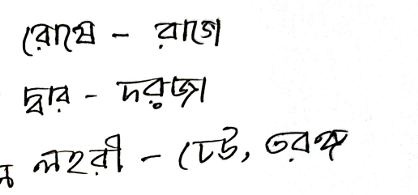 রোষে - রাগে
দ্বার - দরজা
লহরী - ঢেউ, তরঙ্গ